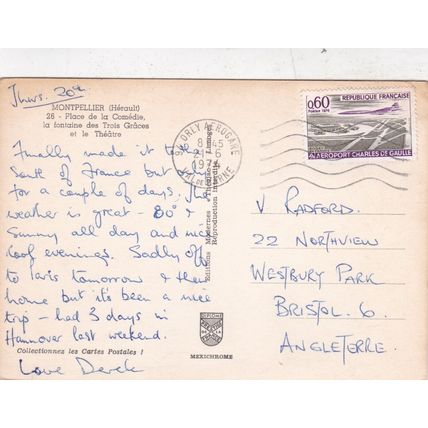 Thurs. 20th
MONTPELLIER (Hérault)
26 - Place de la Comédie,
la fontaine des Trois Grâces
et le Théâtre
Finally made it to the
South of France but only
for a couple of days. The
weather is great - 80° &
Sunny all day and nice
cool evenings. Sadly off
to Paris tomorrow & then
home but it's been a nice
trip - had 3 days in
Hannover last weekend.
Collectionnez les Cartes Postales !
Love Derek
Editions Modernes
Reproduction Interdite
MEXICHROME
ORLY AEROGARE
8 H 45
6
1974
VAL DE MARNE
0,60
REPUBLIQUE FRANÇAISE
POSTES 1974
AEROPORT CHARLES DE GAULLE
V RADFORD.
22 NORTHVIEW
WESTBURY PARK
BRISTOL. 6.
ANGLETERRE.